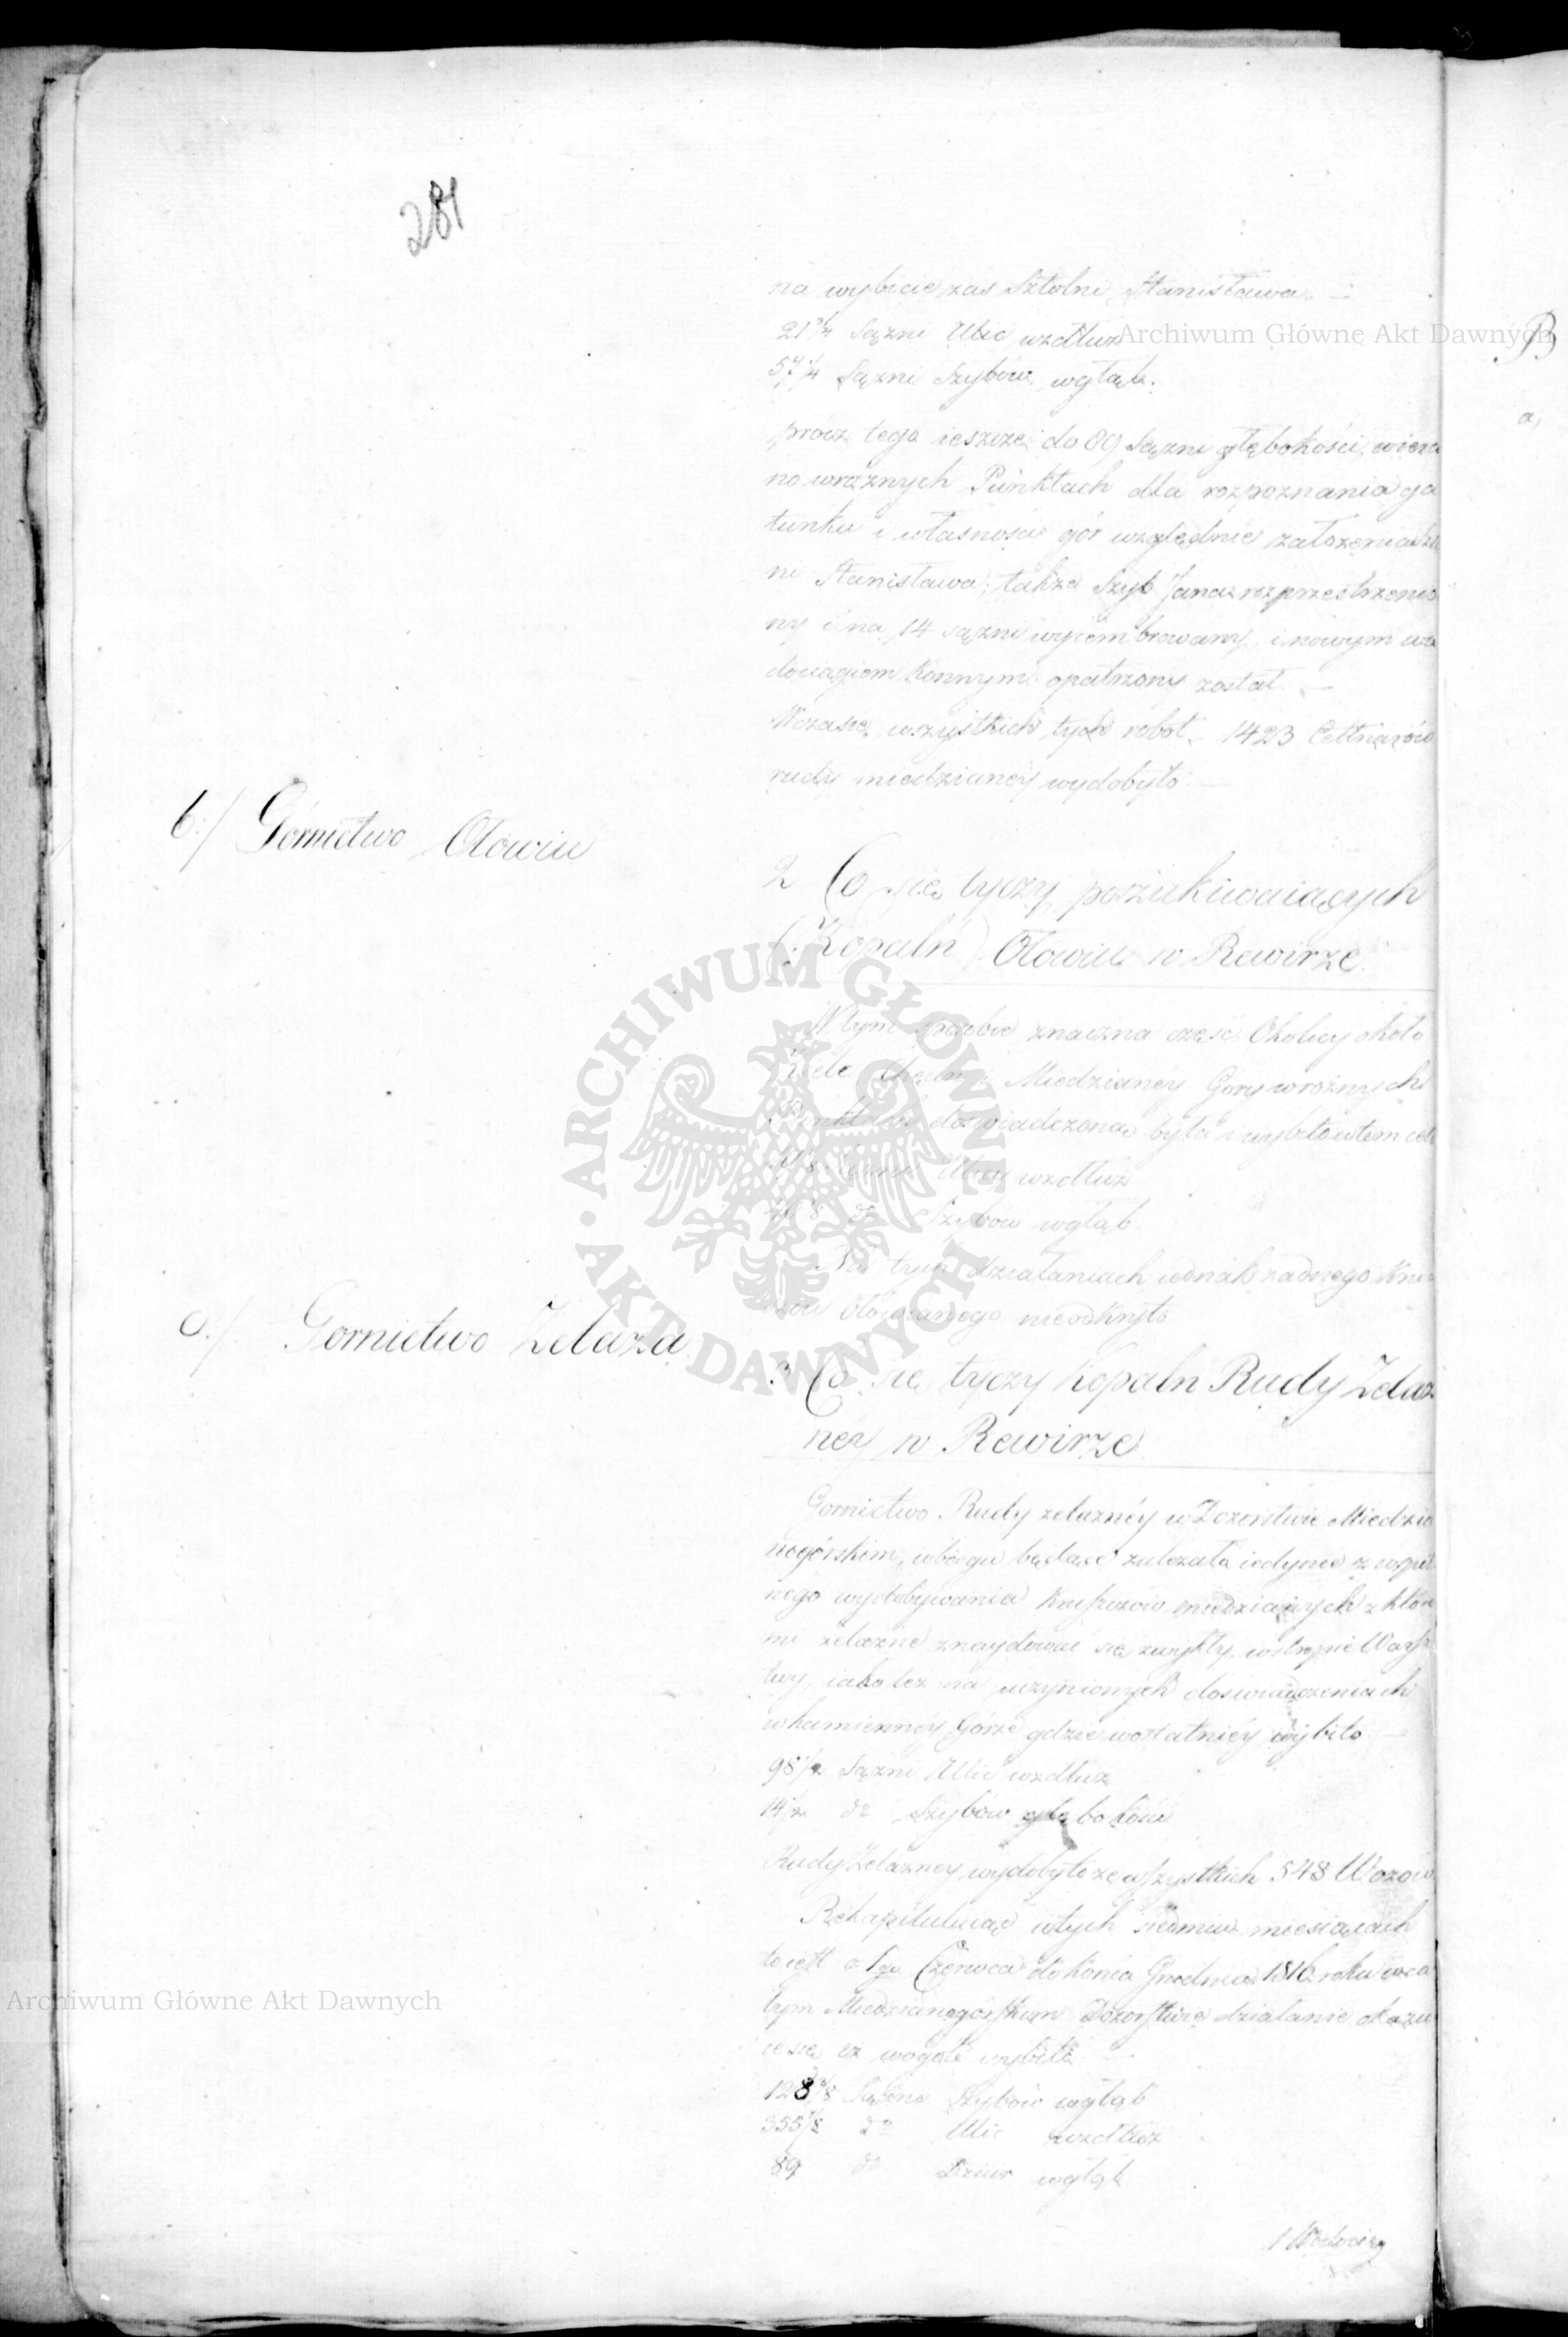 281
na wybicie zas Sztolni Stanisława. —
21 3/4 Sążni Ulic wzdłuż
57 1/4 Sążni Szybów wgłąb.
prócz tego ieszcze do 89 Sążni głębokości wierco
no wróżnych Punktach dla rozpoznania ga
tunku i własności gór względnie założenia Sztol
ni Stanisława; także Szyb Jana rozprzestrzenio
ny i na 14 sążni wycembrowany, i nowym wo
dociągiem konnym opatrzony został. —
Wczasie wszystkich tych robot 1423 Cetnarów
rudy miedzianéy wydobyto —
b./ Górnictwo Ołowiu
2 Co się tyczy poszukiwaiących
(Kopalń) Ołowiu w Rewirze.
W tym sposobie znaczna część Okolicy około
Kielc Chęcin i Miedzianéy Góry wróżnych
Punktach doswiadczona była i wybito wtem celu
Sążni Ulicy wzdłuż
do Szybów wgłąb
Na tych działaniach iednak żadnego Kru
szcu Ołowianego nieodkryto
c./ Gornictwo Żelaza
3 Co się tyczy Kopaln Rudy Żelaz
néy w Rewirze
Gornictwo Rudy żelaznéy w Dozorstwie Miedzia
nogórskim, wbiegu będące zależało iedynie z wspól
nego wydobywania Kruszców miedzianych z któré
mi żelazne znaydować się zwykły, wstropie Warsz
twy, iako też na uczynionych doswiadczeniach
wkamiennéy Górze gdzie wostatniéy wybito —
98 1/2 Sążni Ulic wzdłuż
14 1/2 do Szybów głębokości
Rudy Żelaznéy wydobyto ze wszystkich 548 Wozów
Rekapituluiąc wtych siedmiu miesiącach
to iest o 1go Czerwca do końca Grudnia 1816. roku wca
łym Miedzianogórskim Dozorstwie działanie okazu
ie się iż wogóle wybito —
128 /8 Sążni Szybów wgłąb
355 7/8 do Ulic wzdłuż
89 do Dziur wgłąb
1 Wodociąg
B
a,
Archiwum Główne Akt Dawnych
ARCHIWUM GŁÓWNE AKT DAWNYCH
Archiwum Główne Akt Dawnych